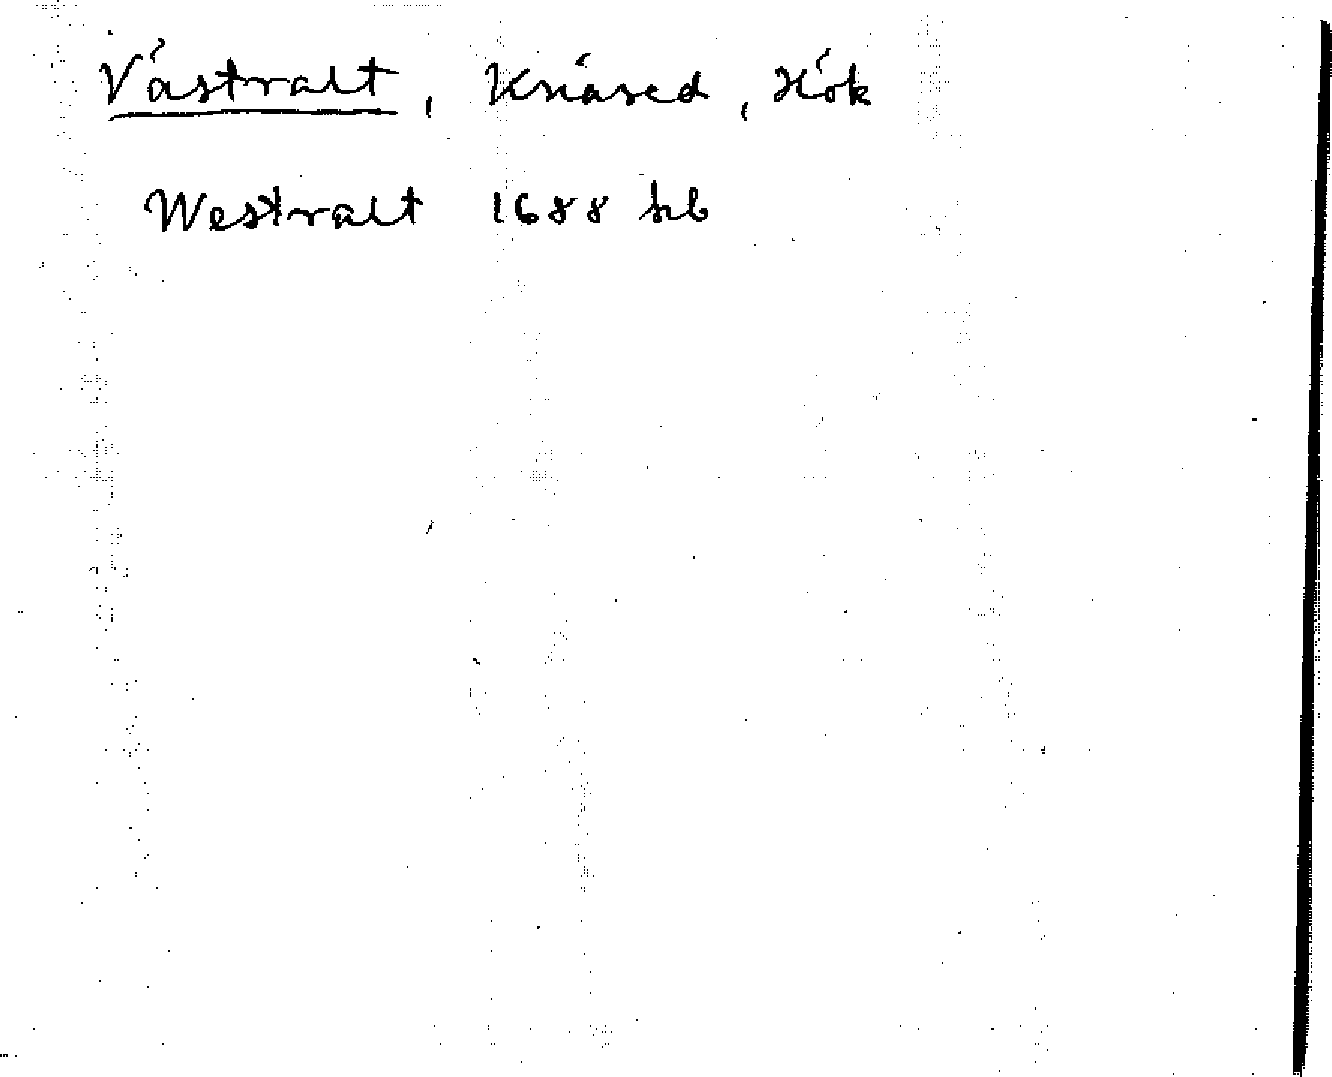 Västralt, Knäred, Hök
Westralt 1688 hb